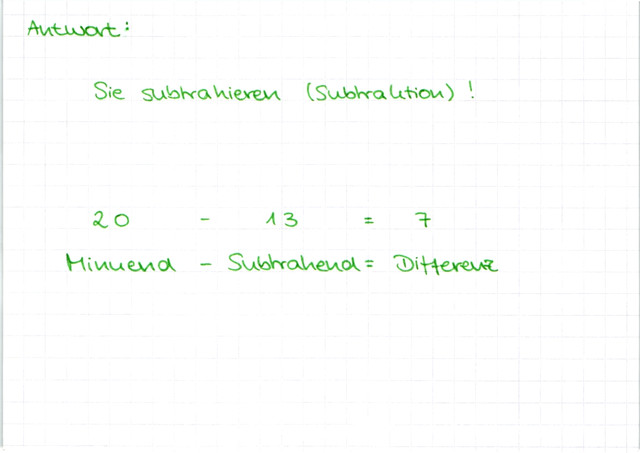 Antwort:
Sie subtrahieren (Subtraktion)!
20 - 13 = 7
Minuend - Subtrahend = Differenz